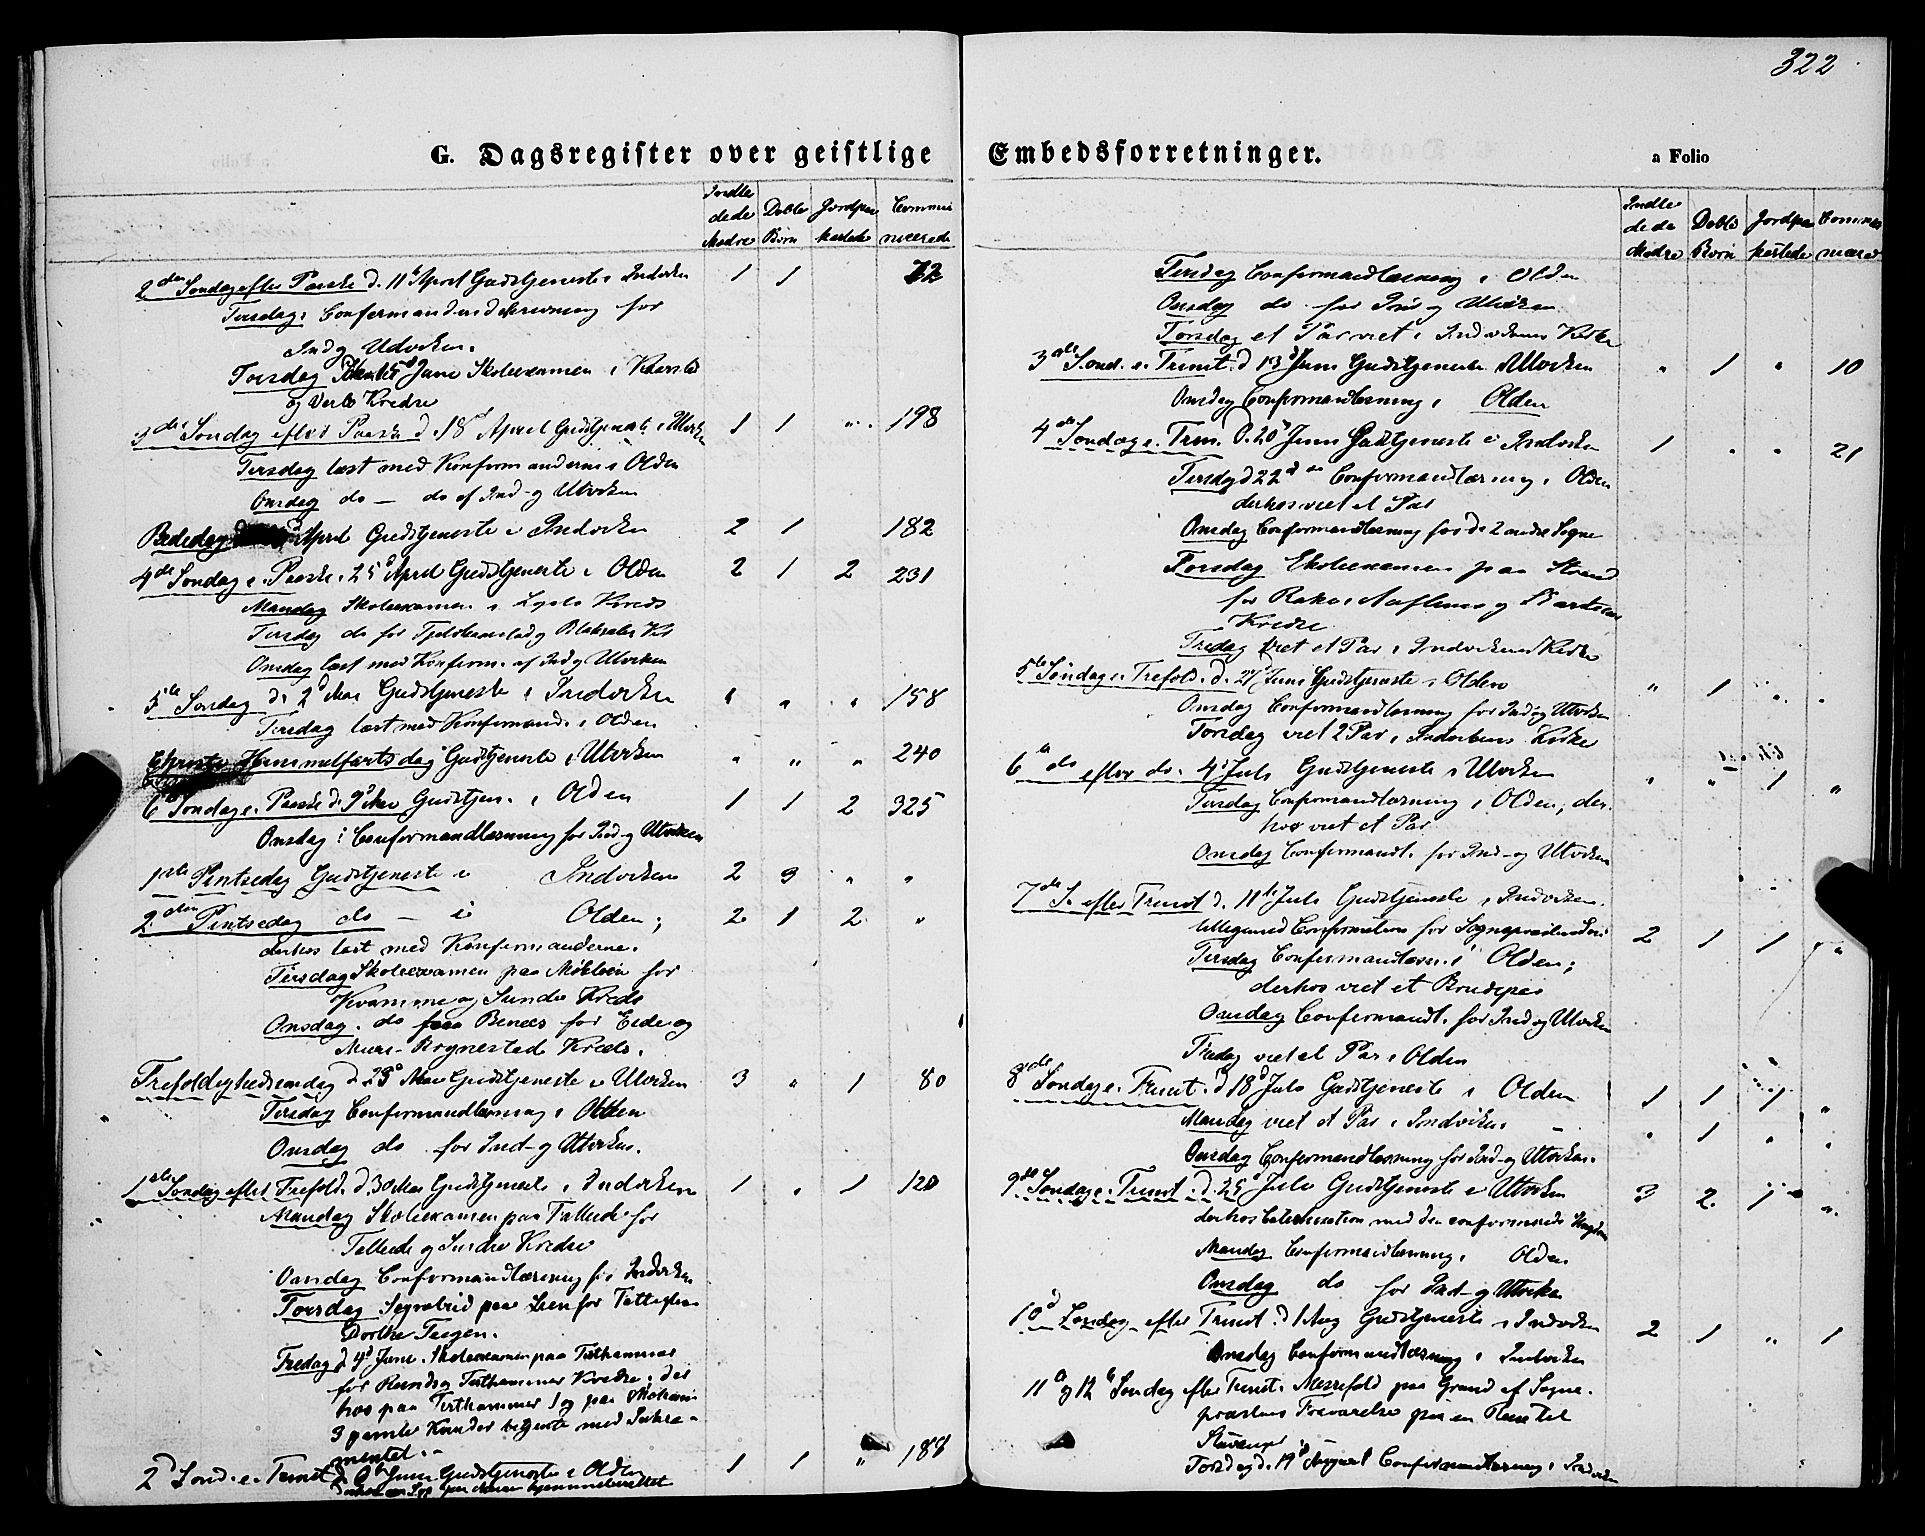 322
G. Dagsregister over geistlige
Indle Døbte Jordpaa Commu
dede
Mødre Børn kastede nicerede
2den Søndag efter Paaske d. 11te April Gudstjeneste i Indviken 1 1 72
Tirsdag: Confirmandindskrivning for
Ind og Udviken.
Torsdag Skoleexamen i
og Kredse
3die Søndag efter Paaske d. 18d April Gudstjeneste i Utviken 1 1 " 198
Tirsdag læst med Konfirmanderne i Olden
Onsdag do — do af Ind- og Utviken
Bededag April Gudstjeneste i Indviken 2 1 182
4de Søndag e. Paaske, 25d April Gudstjeneste i Olden 2 1 2 231
Mandag Skoleexamen i Kreds
Tirsdag do for og
Onsdag læst med Konfirm. af Ind og Utviken
5te Søndag d. 2d Mai Gudstjeneste i Indviken " " " 158
Tirsdag læst med Konfirmand. i Olden
Christi Himmelfartsdag Gudstjeneste i Utviken " " " 240
6te Søndag e. Paaske d. 9d Mai Gudstjen. i Olden 1 1 2 325
Onsdag i Confirmandlæsning for Ind- og Utviken
1ste Pintsedag Gudstjeneste i Indviken 2 3 " "
2den Pintsedag do — i Olden; 2 1 2 "
derhos læst med Konfirmanderne.
Tirsdag Skoleexamen paa for
Kvamme og Sunde Kreds
Onsdag. do paa for Eide og
Muri- Rygnestad Kreds.
Trefoldighedssøndag d. 23d Mai Gudstjeneste i Utviken 3 " 1 80
Tirsdag Confirmandlæsning i Olden
Onsdag do for Ind- og Utviken.
1ste Søndag efter Trefold. d. 30 Mai Gudstjeneste i Indviken 1 " 1 120
Mandag Skoleexamen paa for
og Kredse
Onsdag Confirmandlæsning for Indviken
Torsdag Sognebud paa for
Dorthe Teigen.
Fredag d. 4d Juni. Skoleexamen paa Tisthammer
for og Tisthammer Kredse; der
hos paa Tisthammer 1 og paa
3 gamle betjente med Sakra-
mentet.
2d Sønd. e. Trinit. d. 6te Juni Gudstjeneste i Olden 1 1 " 188
Embedsforretninger.
a Folio
Indle Døbte Jordpaa Commu
dede
Mødre Børn kastede nicered
Tirsdag Confirmandlæsning i Olden
Onsdag do for Ind og Utviken
Torsdag et Par viet i Indvikens Kirke
3die Sønd. e. Trinit. d. 13d Juni Gudstjeneste Utviken " 1 " 10
Onsdag Confirmandlæsning i Olden
4de Søndag e. Trin. d. 20d Juni Gudstjeneste i Indviken 1 " " 21
Tirsdag d. 22d Confirmandlæsning i Olden
derhos viet et Par
Onsdag Confirmandlæsning for de 2 andre Sogne
Torsdag Skoleexamen paa
for og
Kredse
Fredag viet et Par i Indvikens Kirke
5te Søndag e. Trefold. d. 27 Juni Gudstjeneste i Olden " 1 " "
Onsdag Confirmandlæsning for Ind og Utviken
Torsdag viet 2 Par i Indvikens Kirke
6te do efter do. 4d Juli Gudstjeneste i Utviken " " 1 "
Tirsdag Confirmandlæsning i Olden, der-
hos viet et Par
Onsdag Confirmandl. for Ind- og Utviken
7de S. efter Trinit d. 11te Juli Gudstjeneste i Indviken.
tilligemed Confirmation for 2 1 1 "
Tirsdag Confirmandlæsn. i Olden;
derhos viet et Brudepar
Onsdag Confirmandl. for Ind og Utviken
Fredag viet et Par i Olden
8de Søndag e. Trinit. d. 18d Juli Gudstjeneste i Olden 1 1 1 "
Mandag viet et Par i Indviken " 1 " "
Onsdag Confirmandlæsning for Ind- og Utviken.
9de Søndag e. Trinit. d. 25d Juli Gudstjeneste i Utviken 3 2 1 "
derhos Catechisation med den confirmerede Ungdom
Mandag Confirmandlæsning i Olden
Onsdag do for Ind- og Utviken
10d Søndag efter Trinit. d. 1 Aug Gudstjeneste i Indviken 2 1 " 1
Onsdag Confirmandlæsning i Indviken
11te og 12te Søndag efter Trinit. Messefald paa Grund af Sogne-
præstens Fraværelse paa en til
Stavanger
Torsdag d. 19d August Confirmandlæsning i Indviken